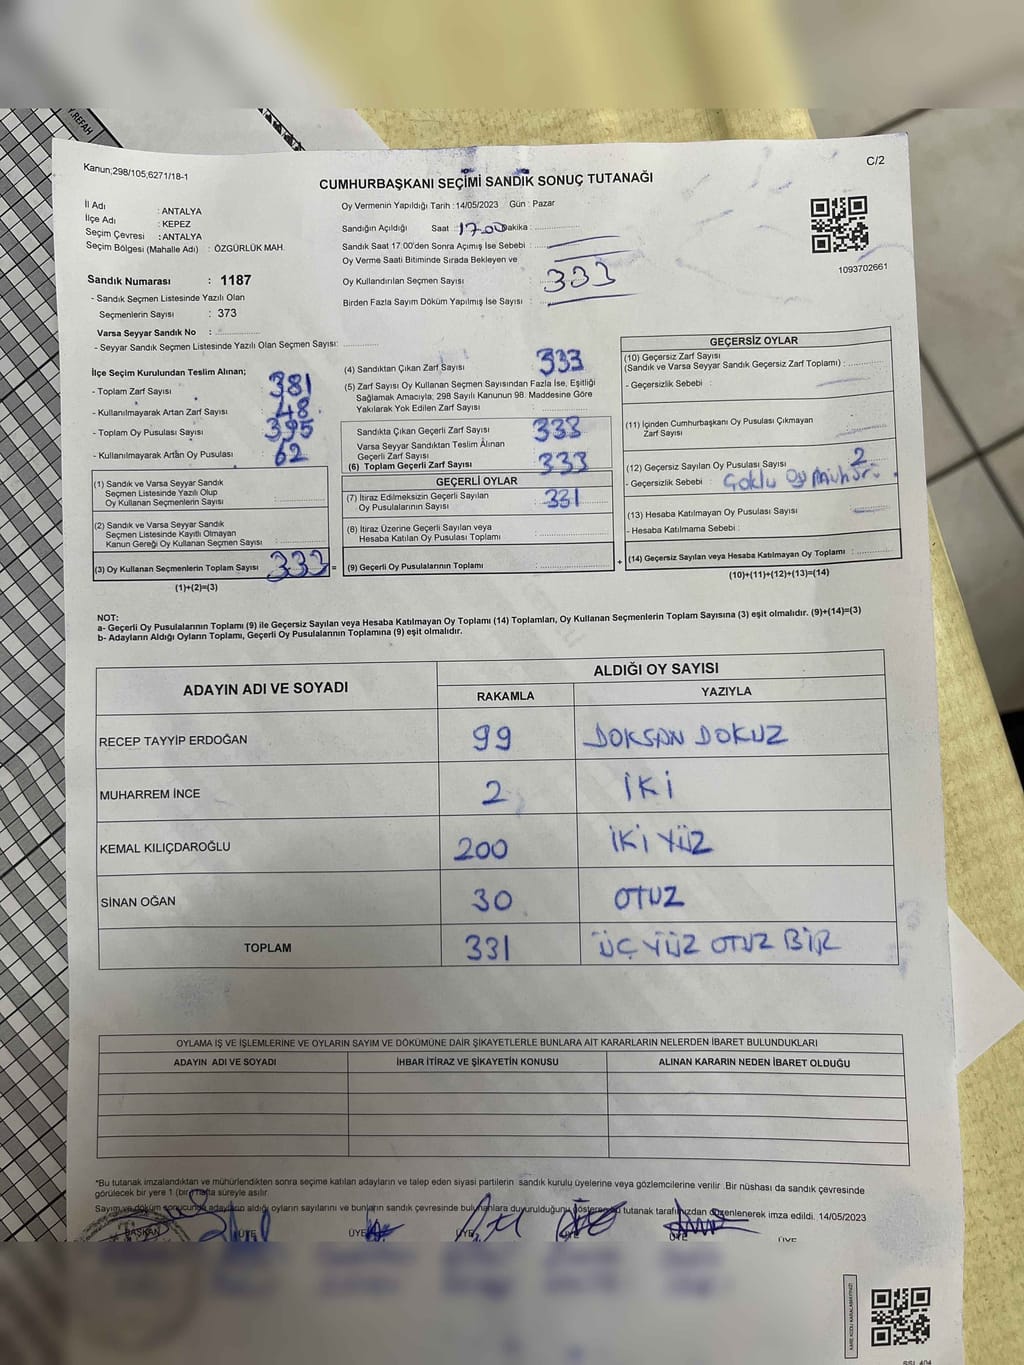 T.REFAH
Kanun;298/105,6271/18-1
C/2
CUMHURBAŞKANI SEÇİMİ SANDIK SONUÇ TUTANAĞI
İl Adı : ANTALYA
İlçe Adı : KEPEZ
Seçim Çevresi : ANTALYA
Seçim Bölgesi (Mahalle Adı) : ÖZGÜRLÜK MAH.
Oy Vermenin Yapıldığı Tarih : 14/05/2023 Gün : Pazar
Sandığın Açıldığı Saat : 17.00 Dakika : ..............
Sandık Saat 17:00'den Sonra Açımış İse Sebebi :
Oy Verme Saati Bitiminde Sırada Bekleyen ve
Oy Kullandırılan Seçmen Sayısı : 333
Birden Fazla Sayım Döküm Yapılmış İse Sayısı :
1093702661
Sandık Numarası : 1187
- Sandık Seçmen Listesinde Yazılı Olan
Seçmenlerin Sayısı : 373
Varsa Seyyar Sandık No : ..............
- Seyyar Sandık Seçmen Listesinde Yazılı Olan Seçmen Sayısı: ..............
İlçe Seçim Kurulundan Teslim Alınan;
- Toplam Zarf Sayısı 381
- Kullanılmayarak Artan Zarf Sayısı : 48
- Toplam Oy Pusulası Sayısı 395
- Kullanılmayarak Artan Oy Pusulası : 62
(1) Sandık ve Varsa Seyyar Sandık
Seçmen Listesinde Yazılı Olup
Oy Kullanan Seçmenlerin Sayısı : ..............
(2) Sandık ve Varsa Seyyar Sandık
Seçmen Listesinde Kayıtlı Olmayan
Kanun Gereği Oy Kullanan Seçmen Sayısı : ..............
(3) Oy Kullanan Seçmenlerin Toplam Sayısı 333 =
(1)+(2)=(3)
(4) Sandıktan Çıkan Zarf Sayısı : 333
(5) Zarf Sayısı Oy Kullanan Seçmen Sayısından Fazla İse, Eşitliği
Sağlamak Amacıyla; 298 Sayılı Kanunun 98. Maddesine Göre
Yakılarak Yok Edilen Zarf Sayısı : ..............
Sandıkta Çıkan Geçerli Zarf Sayısı : 333
Varsa Seyyar Sandıktan Teslim Alınan
Geçerli Zarf Sayısı
(6) Toplam Geçerli Zarf Sayısı : 333
GEÇERLİ OYLAR
(7) İtiraz Edilmeksizin Geçerli Sayılan
Oy Pusulalarının Sayısı : 331
(8) İtiraz Üzerine Geçerli Sayılan veya
Hesaba Katılan Oy Pusulası Toplamı : ..............
(9) Geçerli Oy Pusulalarının Toplamı : .............. +
GEÇERSİZ OYLAR
(10) Geçersiz Zarf Sayısı
(Sandık ve Varsa Seyyar Sandık Geçersiz Zarf Toplamı) : ..............
- Geçersizlik Sebebi :
(11) İçinden Cumhurbaşkanı Oy Pusulası Çıkmayan
Zarf Sayısı
(12) Geçersiz Sayılan Oy Pusulası Sayısı : 2
- Geçersizlik Sebebi : Çoklu oy mühürü.
(13) Hesaba Katılmayan Oy Pusulası Sayısı
- Hesaba Katılmama Sebebi :
(14) Geçersiz Sayılan veya Hesaba Katılmayan Oy Toplamı : ..............
(10)+(11)+(12)+(13)=(14)
NOT:
a- Geçerli Oy Pusulalarının Toplamı (9) ile Geçersiz Sayılan veya Hesaba Katılmayan Oy Toplamı (14) Toplamları, Oy Kullanan Seçmenlerin Toplam Sayısına (3) eşit olmalıdır. (9)+(14)=(3)
b- Adayların Aldığı Oyların Toplamı, Geçerli Oy Pusulalarının Toplamına (9) eşit olmalıdır.
ADAYIN ADI VE SOYADI
ALDIĞI OY SAYISI
RAKAMLA YAZIYLA
RECEP TAYYİP ERDOĞAN 99 DOKSAN DOKUZ
MUHARREM İNCE 2 İKİ
KEMAL KILIÇDAROĞLU 200 İKİ YÜZ
SİNAN OĞAN 30 OTUZ
TOPLAM 331 ÜÇ YÜZ OTUZ BİR
OYLAMA İŞ VE İŞLEMLERİNE VE OYLARIN SAYIM VE DÖKÜMÜNE DAİR ŞİKAYETLERLE BUNLARA AİT KARARLARIN NELERDEN İBARET BULUNDUKLARI
ADAYIN ADI VE SOYADI İHBAR İTİRAZ VE ŞİKAYETİN KONUSU ALINAN KARARIN NEDEN İBARET OLDUĞU
*Bu tutanak imzalandıktan ve mühürlendikten sonra seçime katılan adayların ve talep eden siyasi partilerin sandık kurulu üyelerine veya gözlemcilerine verilir. Bir nüshası da sandık çevresinde
görülecek bir yere 1 (bir) hafta süreyle asılır.
Sayım ve döküm sonucunda adayların aldığı oyların sayılarını ve bunların sandık çevresinde bulunanlara duyurulduğunu gösteren bu tutanak tarafımızdan düzenlenerek imza edildi. 14/05/2023
BAŞKAN ÜYE ÜYE ÜYE ÜYE ÜYE ÜYE